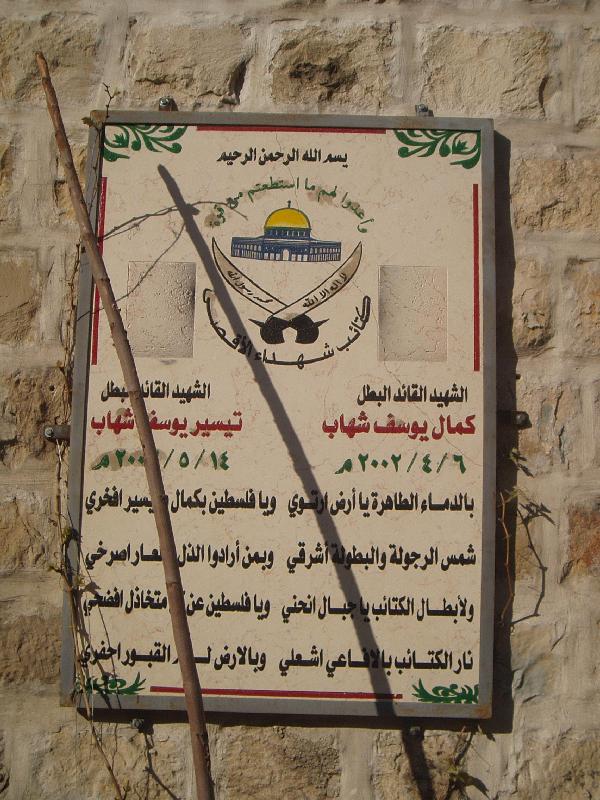 بسم الله الرحمن الرحيم
وأعدوا لهم ما استطعتم من قوة
لا اله الا الله
محمد رسول الله
كتائب شهداء الأقصى
الشهيد القائد البطل
كمال يوسف شهاب
٢٠٠٢/٤/٦ م
الشهيد القائد البطل
تيسير يوسف شهاب
١٤ / ٥ /
م
بالدماء الطاهرة يا أرض ارتوي ويا فلسطين بكمال افخري
شمس الرجولة والبطولة أشرقي وبمن أرادوا الذل اصرخي
ولأبطال الكتائب يا جبال انحني ويا فلسطين عن متخاذل افضحي
نار الكتائب بالافاعي اشعلي وبالارض القبور احفري